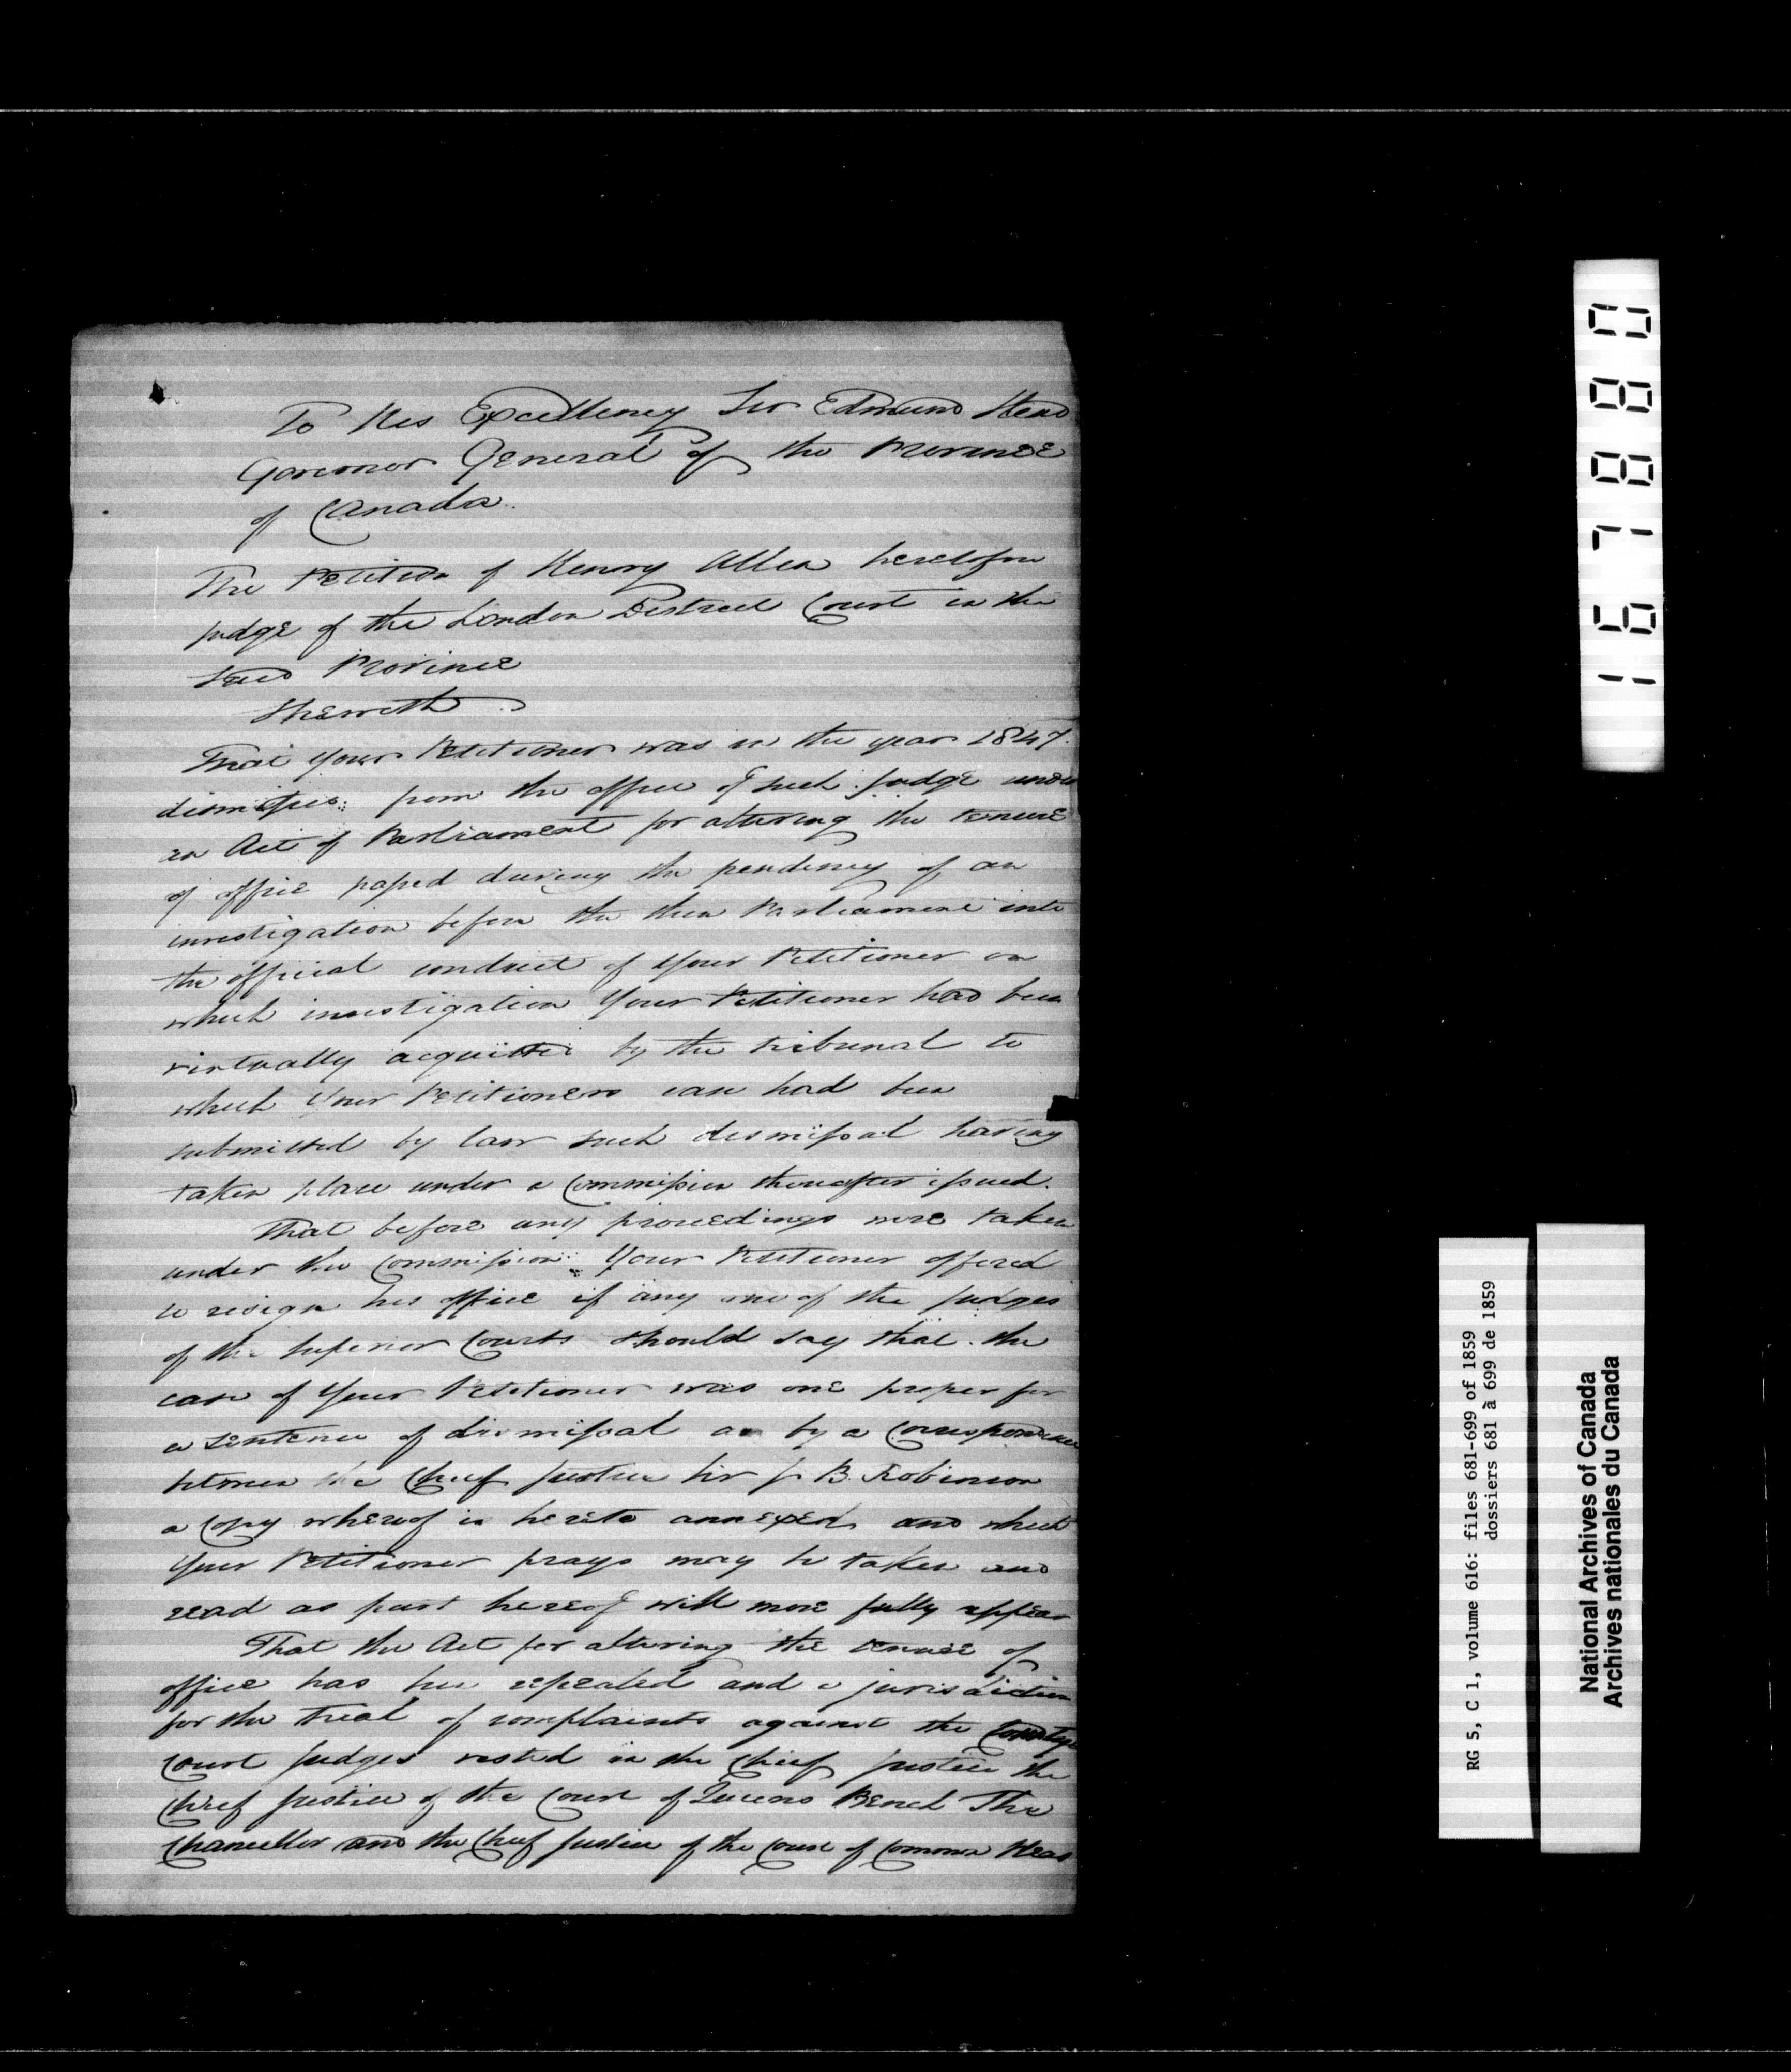 To His Excellency Sir Edmund Head
Governor General of the Province
of Canada
The Petition of Henry Allen heretofore
judge of the London District Court in the
said Province
Sheweth
That your Petitioner was in the year 1847
dismissed from the office of such judge under
an Act of Parliament for altering the tenure
of office passed during the pendency of an
investigation before the then Parliament into
the official conduct of your Petitioner on
which investigation your Petitioner had been
virtually acquitted by the tribunal to
which your Petitioners case had been
submitted by law such dismissal having
taken place under a Commission thereafter issued.
That before any proceedings were taken
under the Commission your Petitioner offered
to resign his office if any one of the judges
of the superior Courts should say that the
case of your Petitioner was one proper for
a sentence of dismissal as by a Correspondence
between the Chief Justice Sir J. B. Robinson
a Copy whereof is hereto annexed and which
your Petitioner prays may be taken and
read as part hereof will more fully appear
That the Act for altering the tenure of
office has been repealed and a jurisdiction
for the trial of complaints against the County
Court judges vested in the Chief Justice the
Chief Justice of the Court of Queens Bench The
Chancellor and the Chief Justice of the Court of Common Pleas
167880
RG 5, C 1, volume 616: files 681-699 of 1859
dossiers 681 à 699 de 1859
National Archives of Canada
Archives nationales du Canada